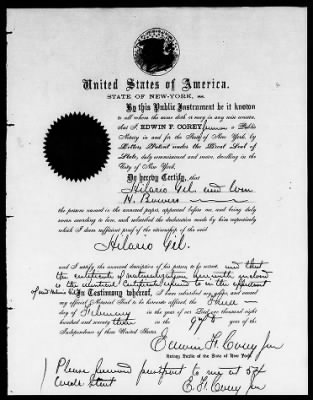 United States of America.
STATE OF NEW-YORK, ss.
By this Public Instrument be it known
to all whom the same doth or may in any wise concern,
that I, EDWIN F. COREY, Junior a Public
Notary in and for the State of New York, by
Letters Patent under the Great Seal of
State, duly commissioned and sworn, dwelling in the
City of New York,
Do hereby Certify, that
Hilario Gil. and Wm
H.
the person named in the annexed paper, appeared before me, and being duly
sworn according to law, and subscribed the declaration made by him respectively
which I deem sufficient proof of the citizenship of the said
Hilario Gil.
and I verify the annexed description of his person to be correct. and that
the certificate of naturalization herewith enclosed
is the identical certificate referred to in the affidavit
of said Hilario Gil
In Testimony whereof, I have subscribed my name, and caused
my official Notarial Seal to be hereunto affixed, the Third
day of February in the year of our Lord one thousand eight
hundred and seventy three in the 97th year of the
Independence of these United States.
Edwin F. Corey Jun
Notary Public of the State of New York.
Please forward passport to me at 54
Wall Street
E. F. Corey Jun